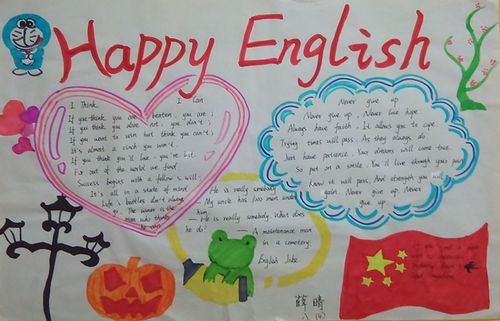 Happy English
I Think I Can
If you think you are beaten, you are;
If you think you dare not, you don't;
If you want to win but think you can't;
It's almost a cinch you won't.
If you think you'll lose, you're lost;
For out of the world we find
Success begins with a fellow's will;
It's all in a state of mind
Life's battles don't always
go. The winner is the
man who thinks
he can.
Never give up
Never give up, Never lose hope.
Always have faith, It allows you to cope.
Trying times will pass, As they always do.
Just have patience, Your dreams will come true.
So put on a smile, You'll live through your pain.
Know it will pass, And strength you will
gain Never give up. Never
give up.
He is really somebody
— My uncle has 1000 men under
him.
— He is really somebody. What does
he do?
— A maintenance man
in a cemetery.
English Joke
薛晴